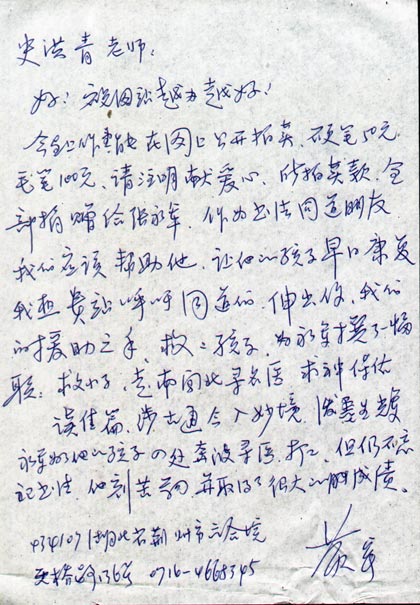 史洪青老师：
好！祝网站越办越好！
今寄上作书能在网上公开拍卖，硬笔50元
毛笔100元，请注明献爱心，所拍卖款，全
部捐赠给张永军，作为书法同道朋友
我们应该帮助他，让他的孩子早日康复
我想贵站呼吁同道们，伸出你、我们
的援助之手，救救孩子，为永军撰了一幅
联：救小子，走南闯北寻名医，求神保佑
读佳篇，涉古通今入妙境，泼墨
永军为他的孩子四处奔波寻医，打工，但仍不忘
记书法，他刻苦，并取得了很大的成绩。
434107湖北省荆州市
路136号 0716-4668345